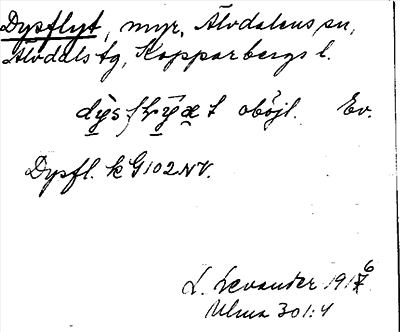 Dysflyt, myr, Älvdalens sn,
Älvdals tg, Kopparbergs l.
oböjl. Ev.
Dysfl. k G102NV.
L. Levander 1916
Ulma 301:4